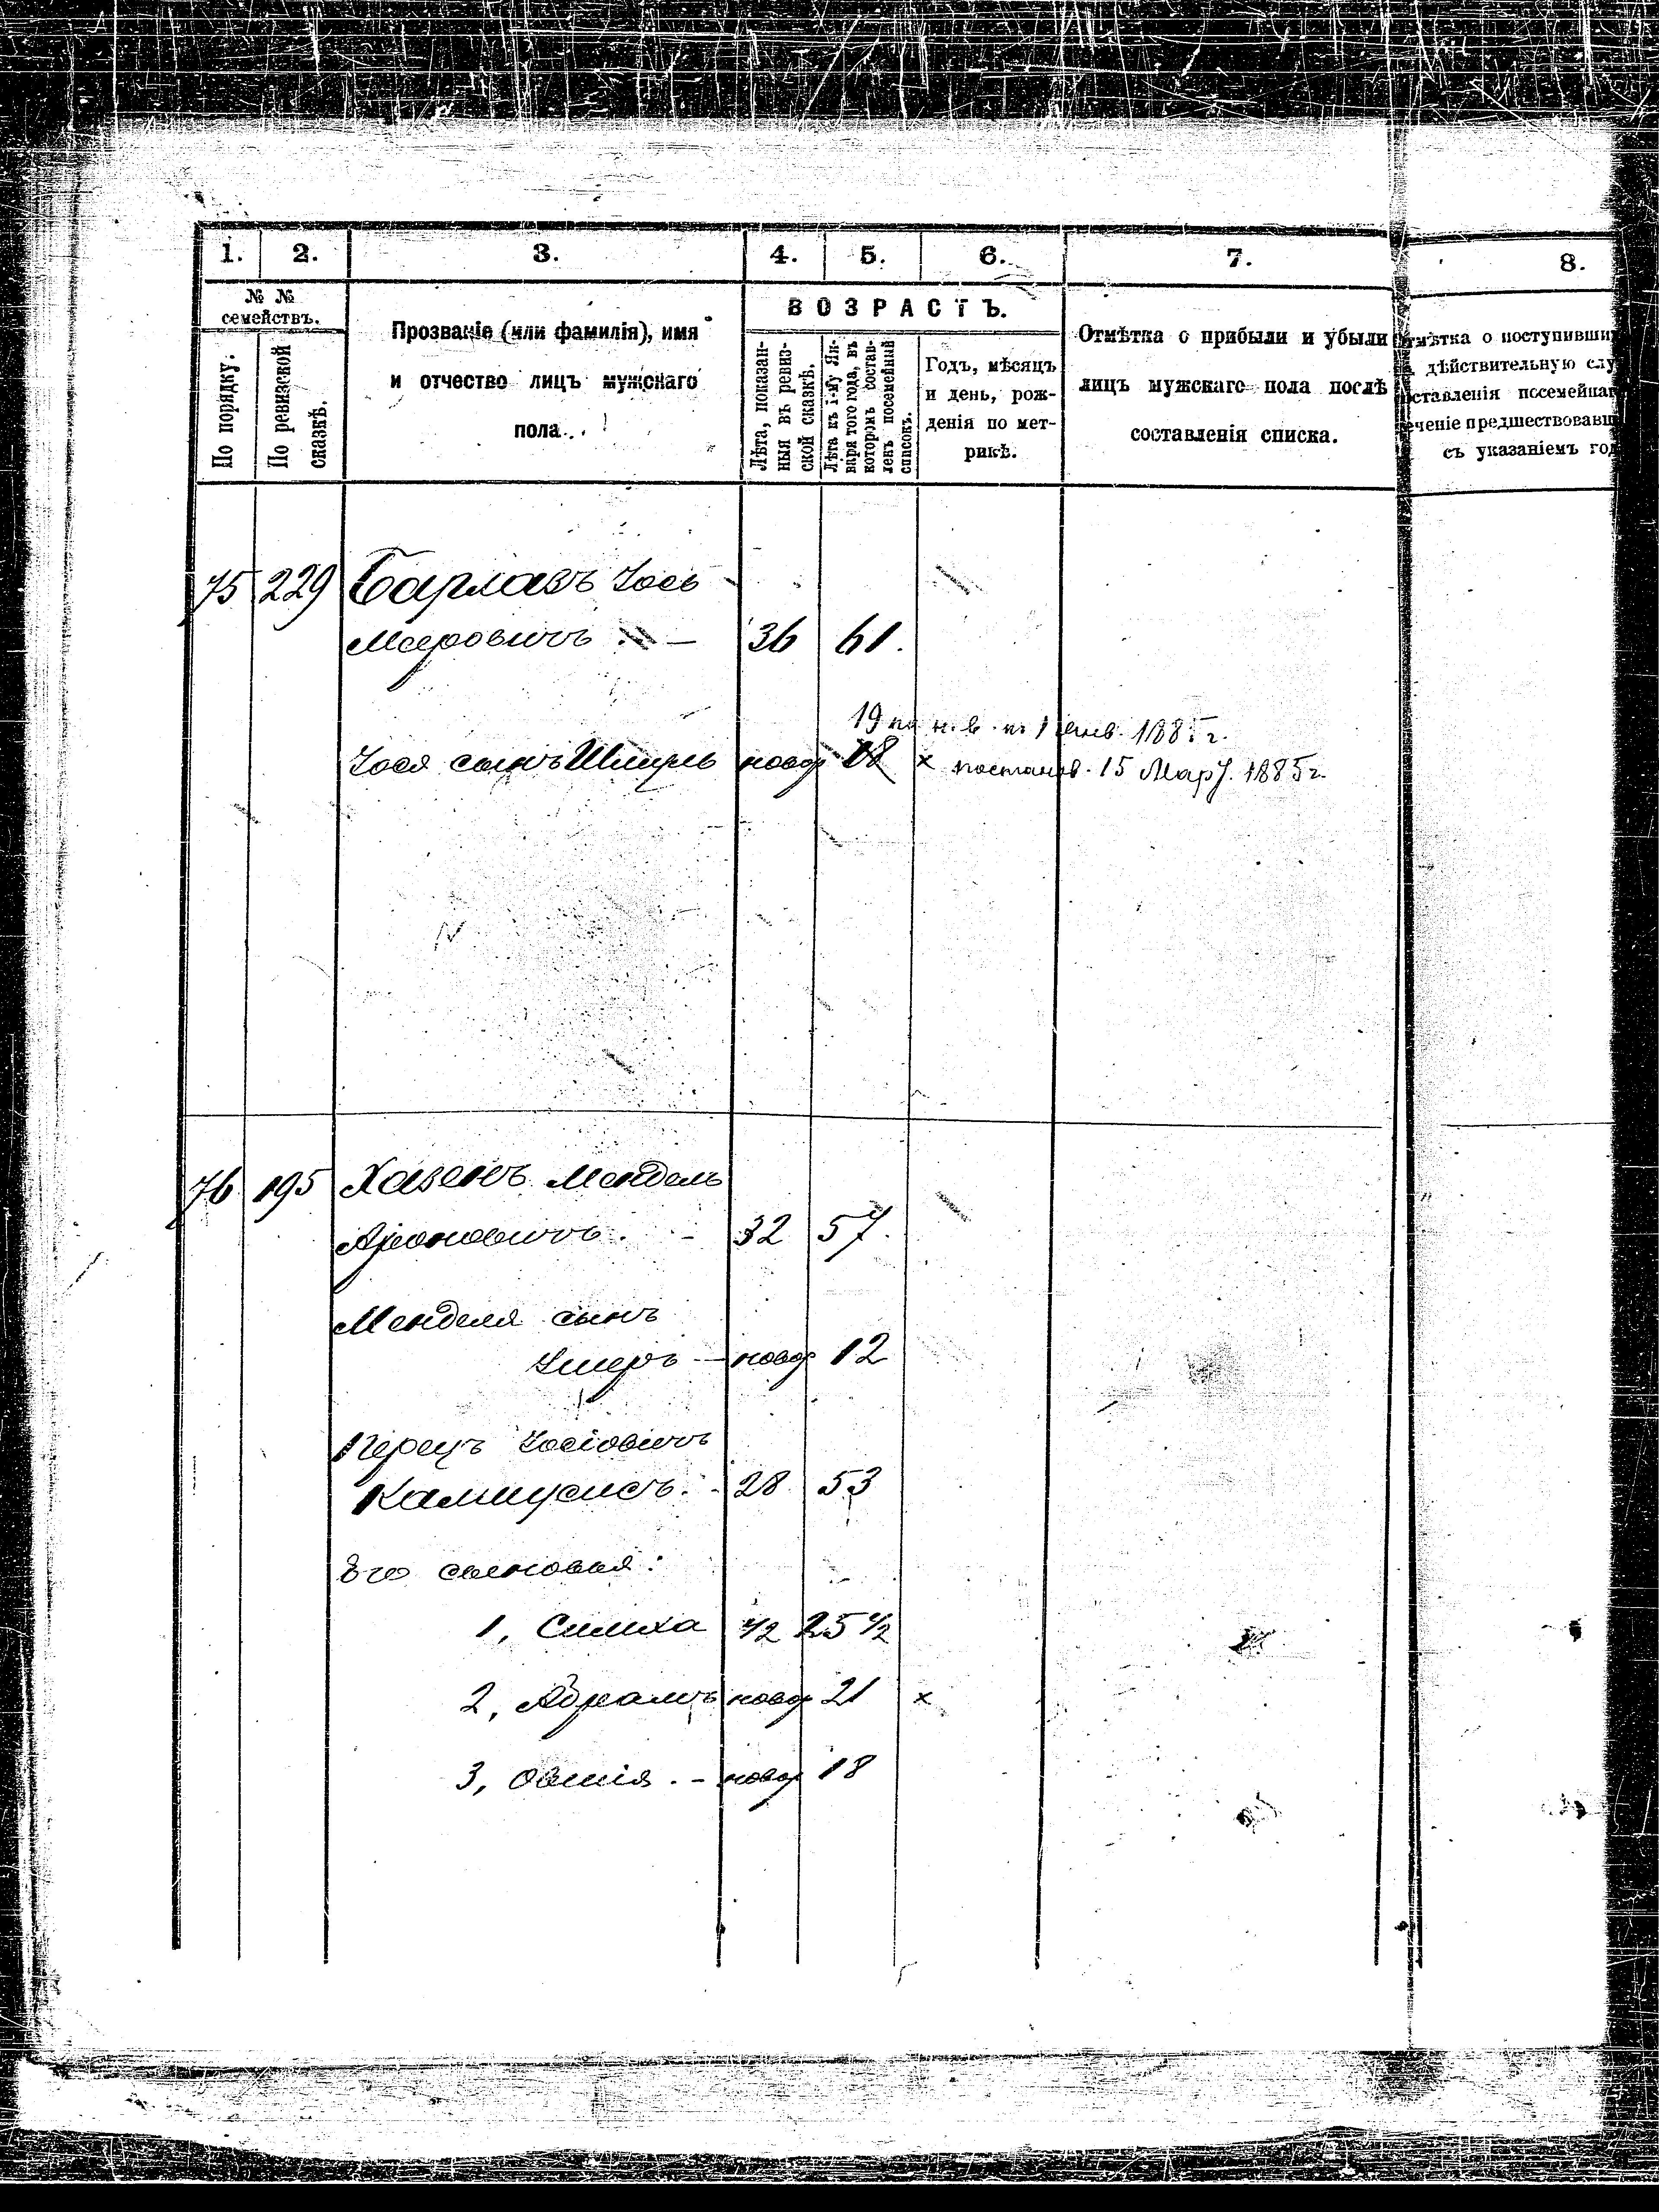 1. 2. 3. 4. 5. 6. 7. 8.
№ № семействъ.
По порядку.
По ревизской сказкѣ.
Прозваніе (или фамилія), имя
и отчество лицъ мужскаго
пола.
ВОЗРАСТЪ.
Лѣта, показан-
ныя въ ревиз-
ской сказкѣ.
Лѣта къ 1-му Ян-
варя того года, въ
которомъ состав-
ленъ посемейный
списокъ.
Годъ, мѣсяцъ
и день, рож-
денія по мет-
рикѣ.
Отмѣтка о прибыли и убыли
лицъ мужскаго пола послѣ
составленія списка.
тмѣтка о поступивши
дѣйствительную слу
оставленія посемейна
еченіе предшествовавш
съ указаніемъ го
75 229 Барлазъ Іось
Мееровичъ — 36 61.
19 по н. в. къ 1 Янв. 1885 г.
Іося сынъ Шмуль новор 18 ×
постанов. 15 Мар. 1885 г.
76 195 Хазенъ Мендель
Ароновичъ. - 32 57.
Менделя сынъ
— новор 12
Перецъ Іосіовичъ
28 53
Его сыновья:
1, Симха 1/2 25 1/2
2, Абрамъ новор 21 ×
3, Овшія. - новор 18